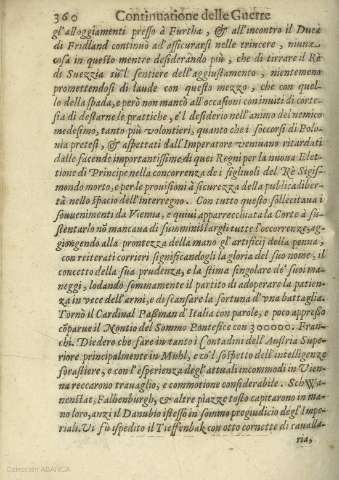 360 Continuatione delle Guerre
gl'alloggiamenti presso à Furtha, & all'incontro il Duca
di Fridland continuò ad'assicurarsi nelle trincere, niuna
cosa in questo mentre desiderando più, che di tirrare il Rè
di Suezzia sù'l sentiere dell'aggiustamento, nientemeno
promettendosi di laude con questo mezzo, che con quel-
lo della spada, e però non mancò all'occasioni con inuiti di corte-
sia di destarne le prattiche, e'l desiderio nell'animo del nemico
medesimo, tanto più volontieri, quanto che i soccorsi di Polo-
nia pretesi, & aspettati dall'Imperatore veniuano ritardati
dalle facende importantissime di quei Regni per la nuoua Elet-
tione di Principe nella concorrenza de i figliuoli del Rè Sigis-
mondo morto, e per le prouisioni à sicurezza della publica liber-
tà nello spacio dell'interregno. Con tutto questo sollecitaua i
souuenimenti da Vienna, e quiui apparecchiata la Corte à su-
stentarlo nõ mancaua di sumministrargli tutte l'occorrenze, ag-
giongendo alla prontezza della mano gl'artificij della penna,
con reiterati corrieri significandogli la gloria del suo nome, il
concetto della sua prudenza, e la stima singolare de' suoi ma-
neggi, lodando sommamente il partito di adoperare la patien-
za in vece dell'armi, e di scansare la fortuna d'vna battaglia.
Tornò il Cardinal Pasman d'Italia con parole, e poco appresso
cõparue il Nontio del Sommo Pontefice con 300000. Fran-
chi. Diedero che fare in tanto i Contadini dell'Austria Supe-
riore principalmente in Muhl, e co'l sospetto dell'intelligenze
forastiere, e con l'esperienza degl'attuali incommodi in Vien-
na reccarono trauaglio, e commotione considerabile. SchWa-
nenstat, Falhenburgh, & altre piazze tosto capitarono in ma-
no loro, anzi il Danubio istesso in sommo pregiudicio degl'Impe-
riali. Vi fù ispedito il Tieffenbak con otto cornette di caualla-
ria,
Colección ABANCA